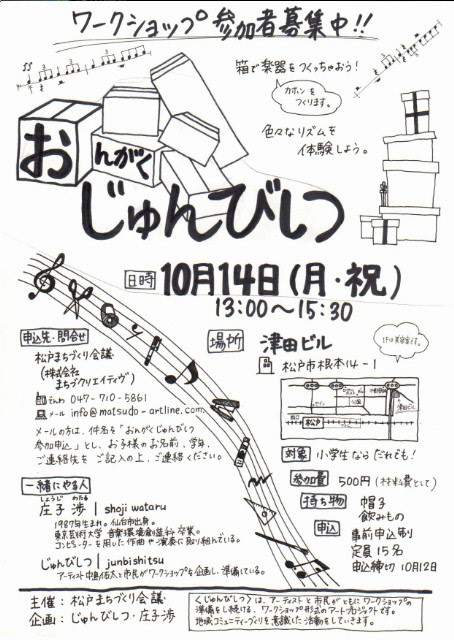 ワークショップ参加者募集中!!
箱で楽器をつくっちゃおう!
カホンを
つくります。
色々なリズムを
体験しよう。
おんがく
じゅんびしつ
日時 10月14日(月・祝)
13:00〜15:30
場所 津田ビル
松戸市根本14-1
1Fは美容室です。
松戸
申込先・問合せ
松戸まちづくり会議
(株式会社
まちづクリエイティヴ)
でんわ 047-710-5861
メール info@matsudo-artline.com
メールの方は、件名を「おんがくじゅんびしつ
参加申込」とし、お子様のお名前、学年、
ご連絡先を ご記入の上、ご連絡ください。
対象 小学生ならだれでも!
参加費 500円(材料費として)
持ち物 帽子
飲みもの
申込 事前申込制
定員15名
申込締切 10月12日
一緒にやる人
しょうじ わたる
庄子 渉 | shoji wataru
1987年生まれ。仙台市出身。
東京芸術大学 音楽環境創造科 卒業。
コンピューターを用いた作曲や演奏に取り組んでいる。
じゅんびしつ | junbishitsu
アーティスト中島佑太と市民がワークショップを企画し、準備している。
主催:松戸まちづくり会議
企画:じゅんびしつ・庄子渉
<じゅんびしつ>は、アーティストと市民がともにワークショップの
準備をし続ける、ワークショップ形式のアートプロジェクトです。
地域コミュニティーづくりを意識した活動をしていきます。